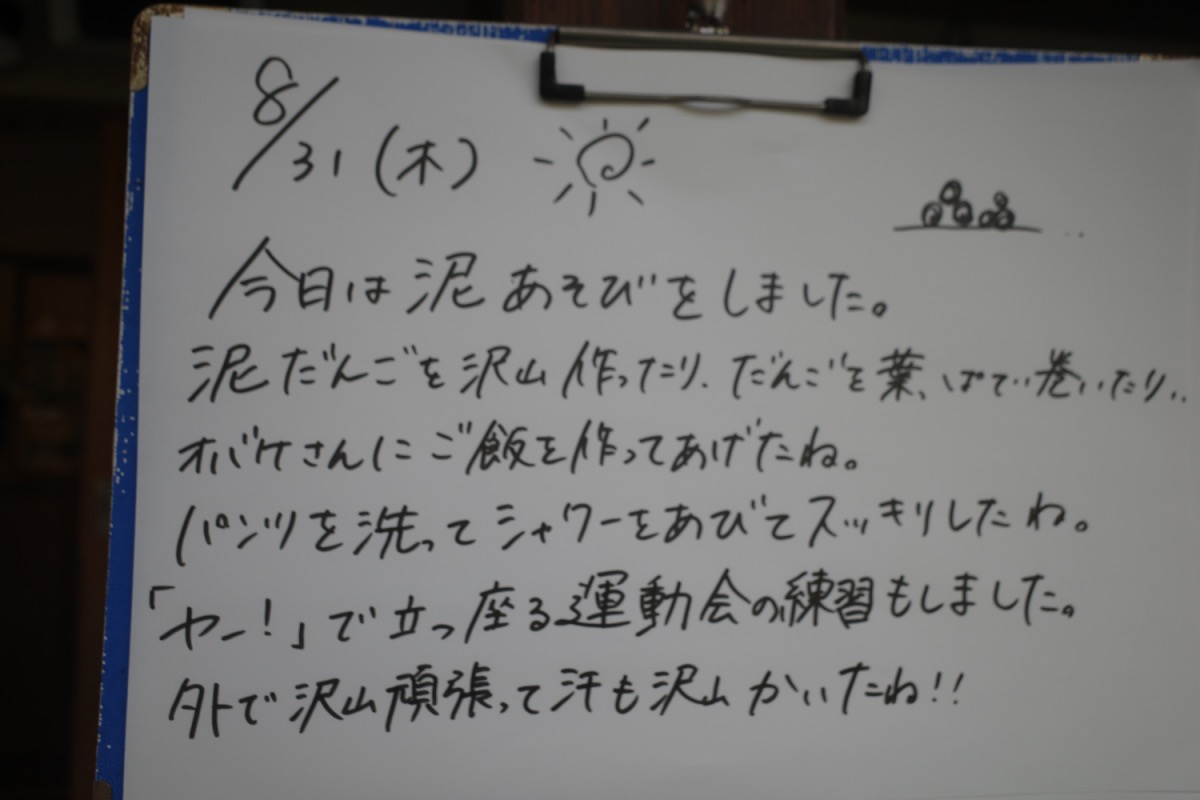 8/31(木)
今日は泥あそびをしました。
泥だんごを沢山作ったり、だんごを葉っぱで巻いたり、
オバケさんにご飯を作ってあげたね。
パンツを洗ってシャワーをあびてスッキリしたね。
「ヤー!」で立つ座る運動会の練習もしました。
外で沢山頑張って汗も沢山かいたね!!